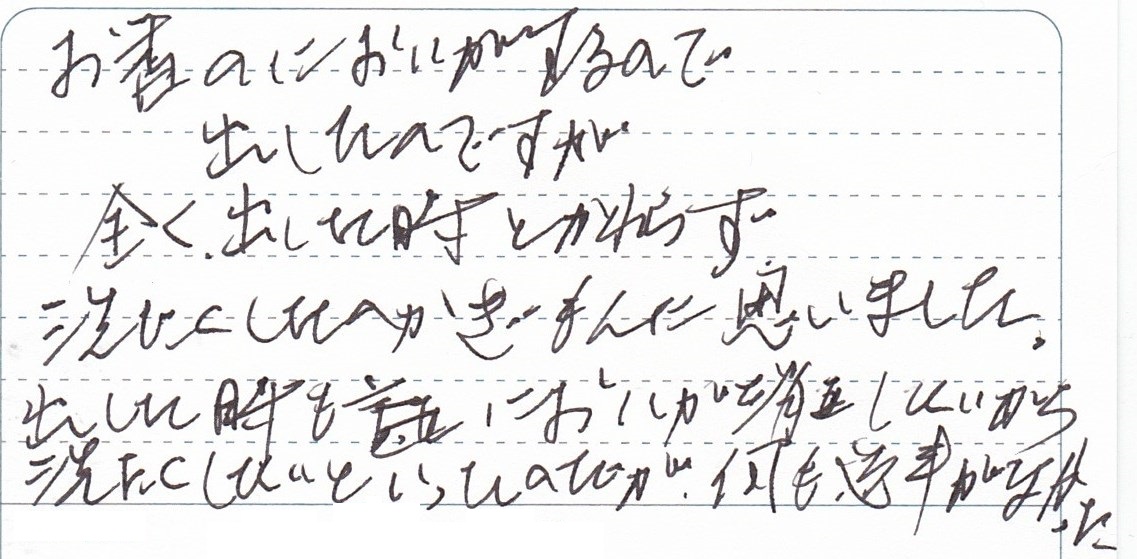 お着のにおいがするので
出したのですが
全く、出した時とかわらず
洗たくしたのかぎもんに思いました。
出した時も においが したいから
洗たくしたいといったのだが、何も返事がなかった